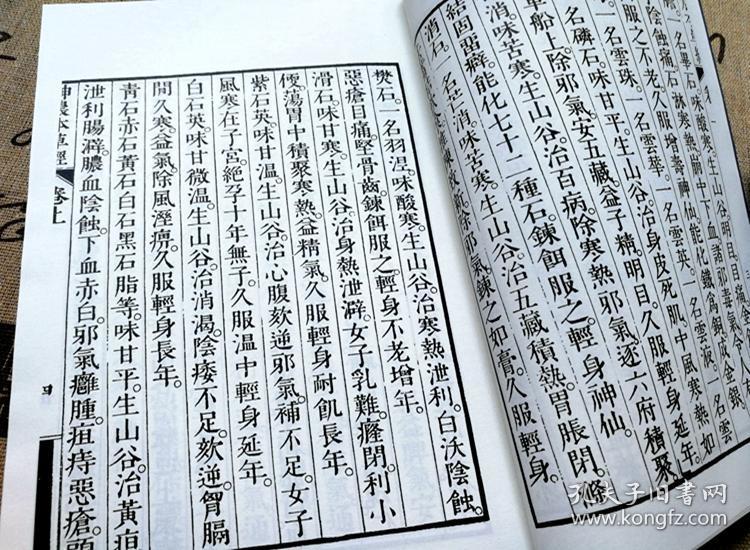 陰蝕痛
服之不老。久服增壽神仙。能化鐵爲銅成金銀
一名雲珠。一名雲華。一名雲英。一名雲液。
一名磷石。味甘平。生山谷。治身皮死肌中風寒熱如
車船上。除邪氣。安五藏。益子精。明目。久服輕身延年。
生山谷。治百病。除寒熱邪氣。逐六府積聚
結固留癖。能化七十二種石。鍊餌服之。輕身神仙。
消石。一名芒消。味苦寒。生山谷。治五藏積熱。胃脹閉。滌
除邪氣。鍊之如膏。久服輕身。
樊石。一名羽涅。味酸寒。生山谷。治寒熱泄利。白沃陰蝕。
惡瘡目痛。堅骨齒。鍊餌服之。輕身不老增年。
滑石。味甘寒。生山谷。治身熱泄澼。女子乳難。癃閉。利小
便。蕩胃中積聚寒熱。益精氣。久服輕身耐飢長年。
紫石英。味甘溫。生山谷。治心腹欬逆邪氣。補不足。女子
風寒在子宮。絕孕十年無子。久服溫中輕身延年。
白石英。味甘微溫。生山谷。治消渴。陰痿不足。欬逆。胷膈
間久寒。益氣。除風溼痹。久服輕身長年。
青石赤石黃石白石黑石脂等。味甘平。生山谷。治黃疸
泄利腸澼。膿血陰蝕。下血赤白。邪氣癰腫。疽痔惡瘡。頭
神農本草經 卷上
孔夫子旧書网
www.kongfz.com